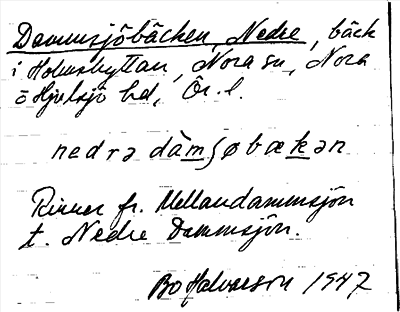 Dammsjöbäcken, Nedre, bäck
i Holmshyttan, Nora sn, Nora
o Hjulsjö bd, Ör. l.
nedrə dàmʃøbækən
Rinner fr. Mellandammsjön
t. Nedre Dammsjön.
Bo Halvarson 1947